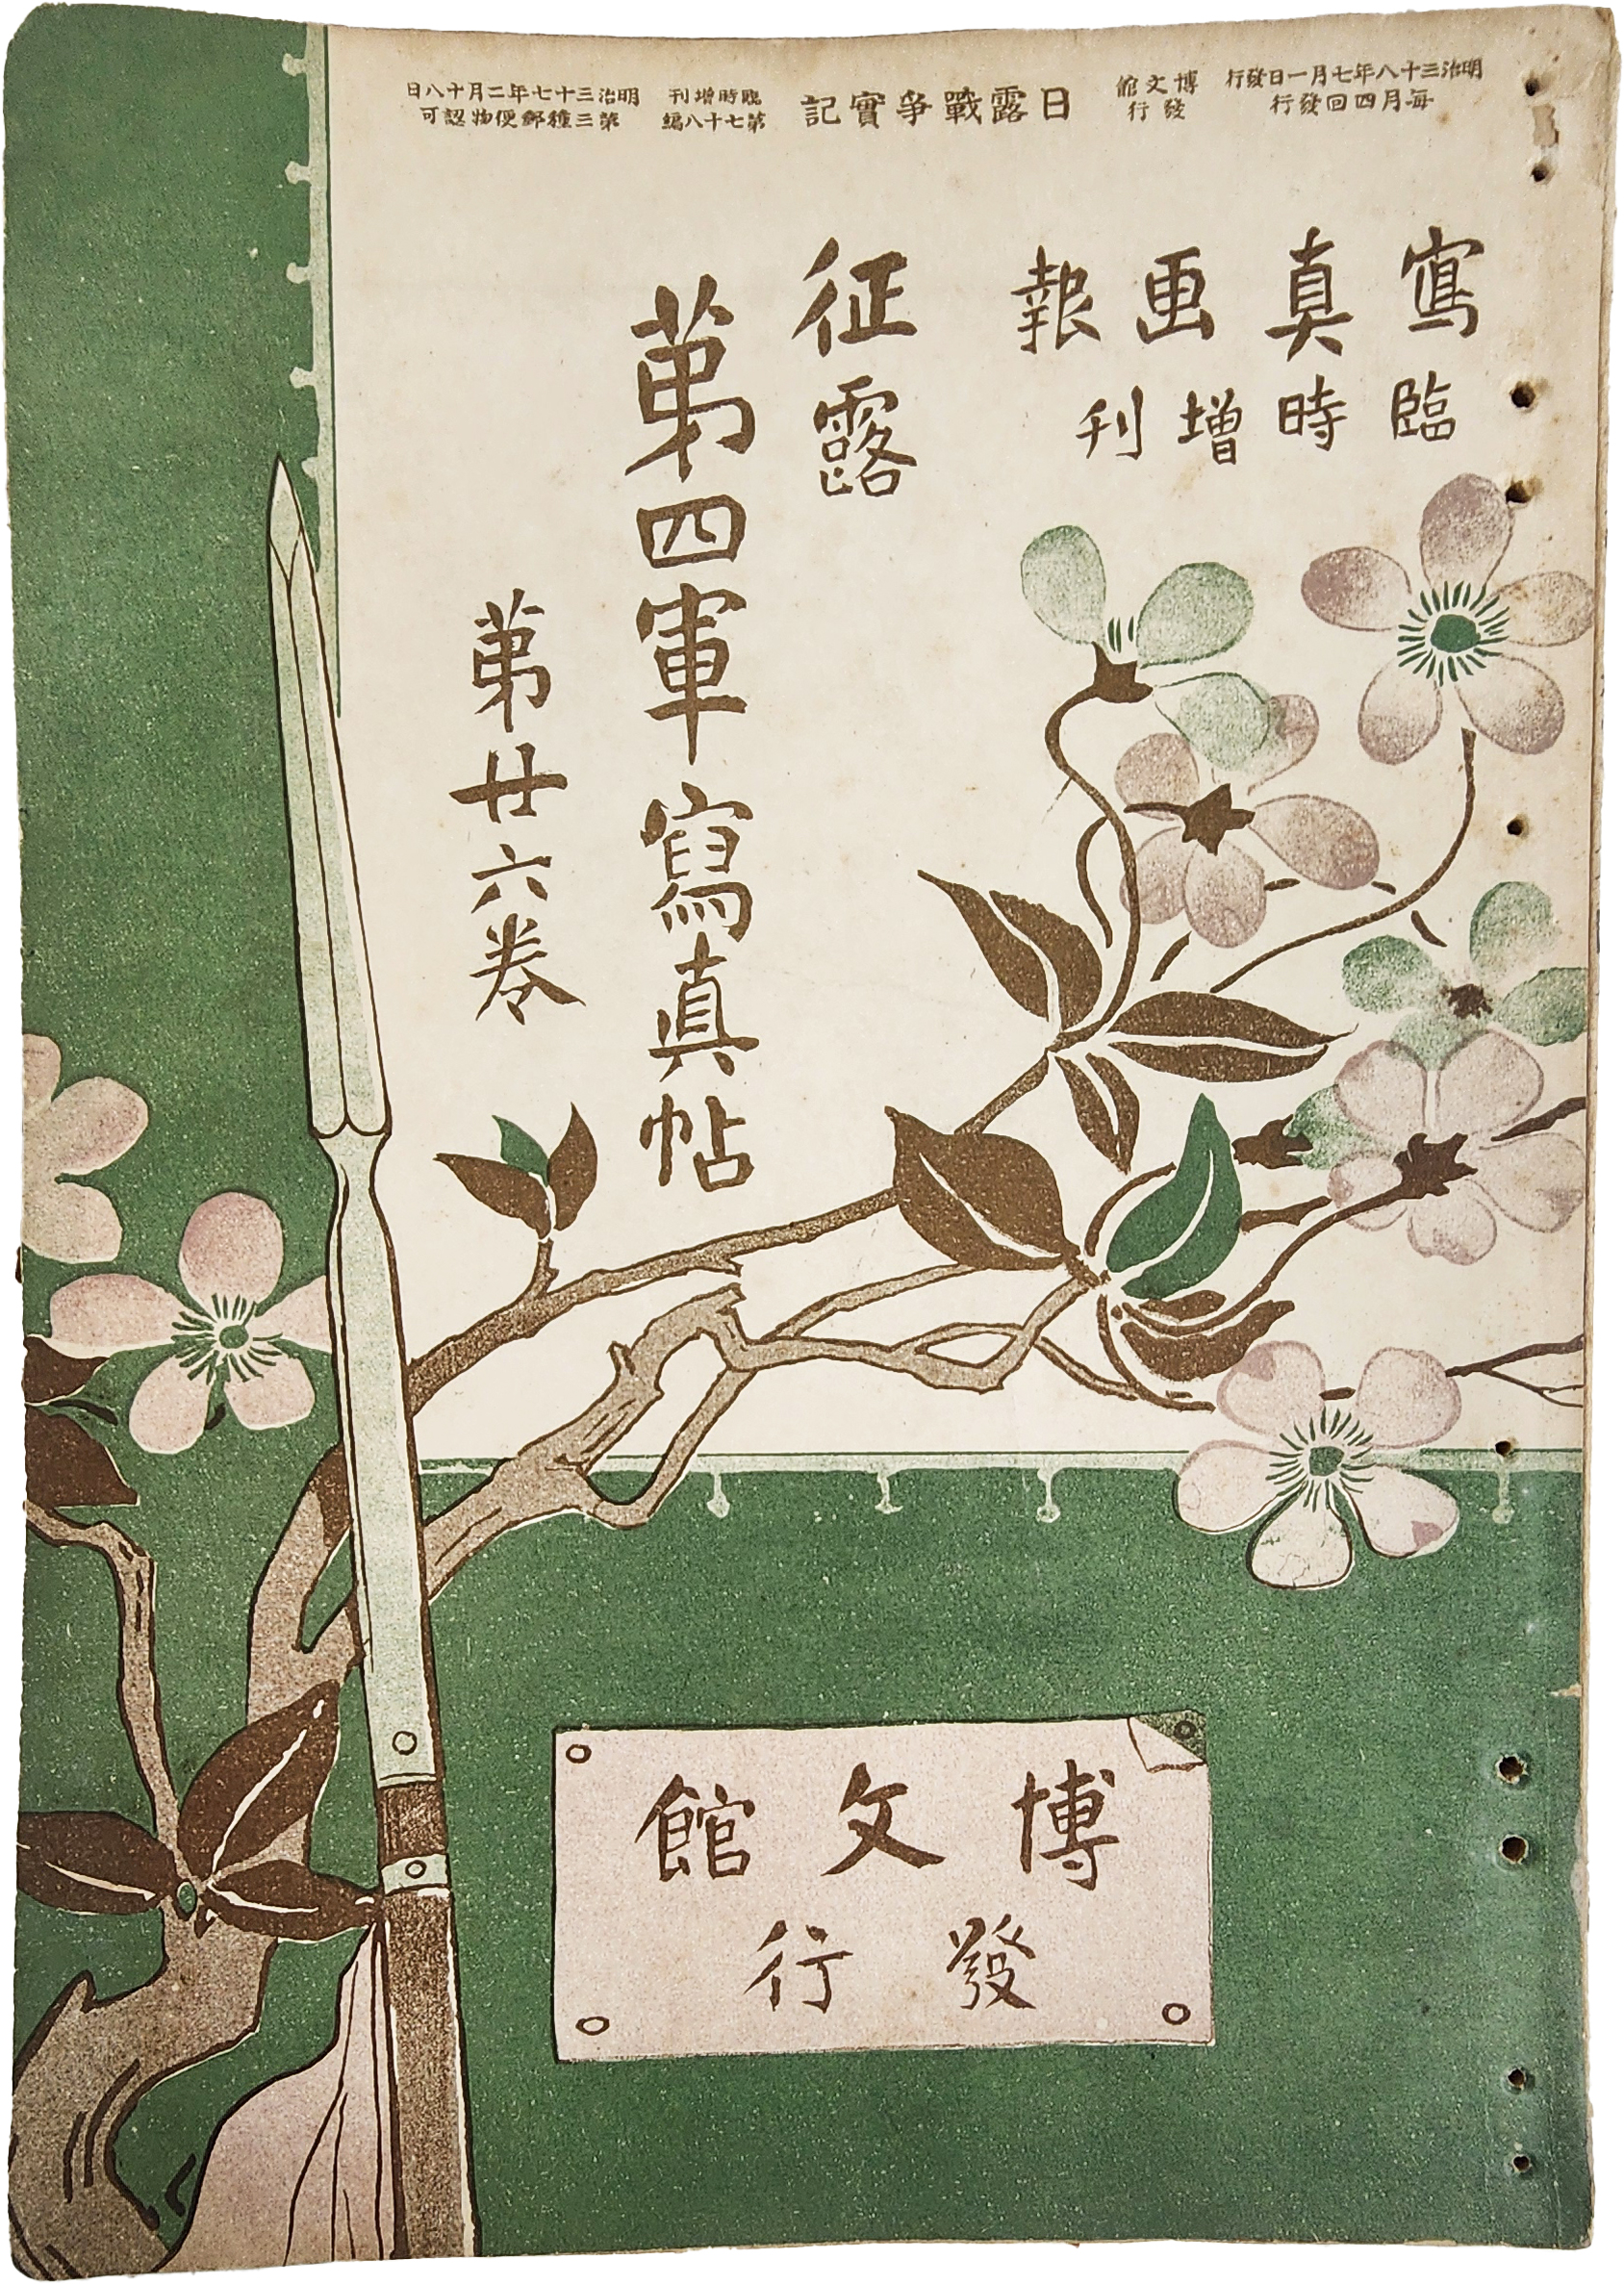 明治三十八年七月一日發行
毎月四回發行
博文館
發行
日露戰爭實記
臨時增刊
第七十八編
明治三十七年二月十八日
第三種郵便物認可
寫真画報
臨時增刊
征露
第四軍寫真帖
第廿六巻
博文館
發行